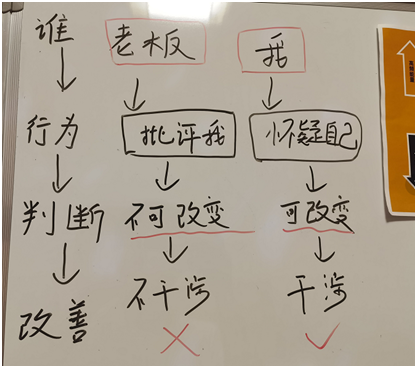 谁 老板 我
行为 批评我 怀疑自己
判断 不可改变 可改变
改善 不干涉 干涉